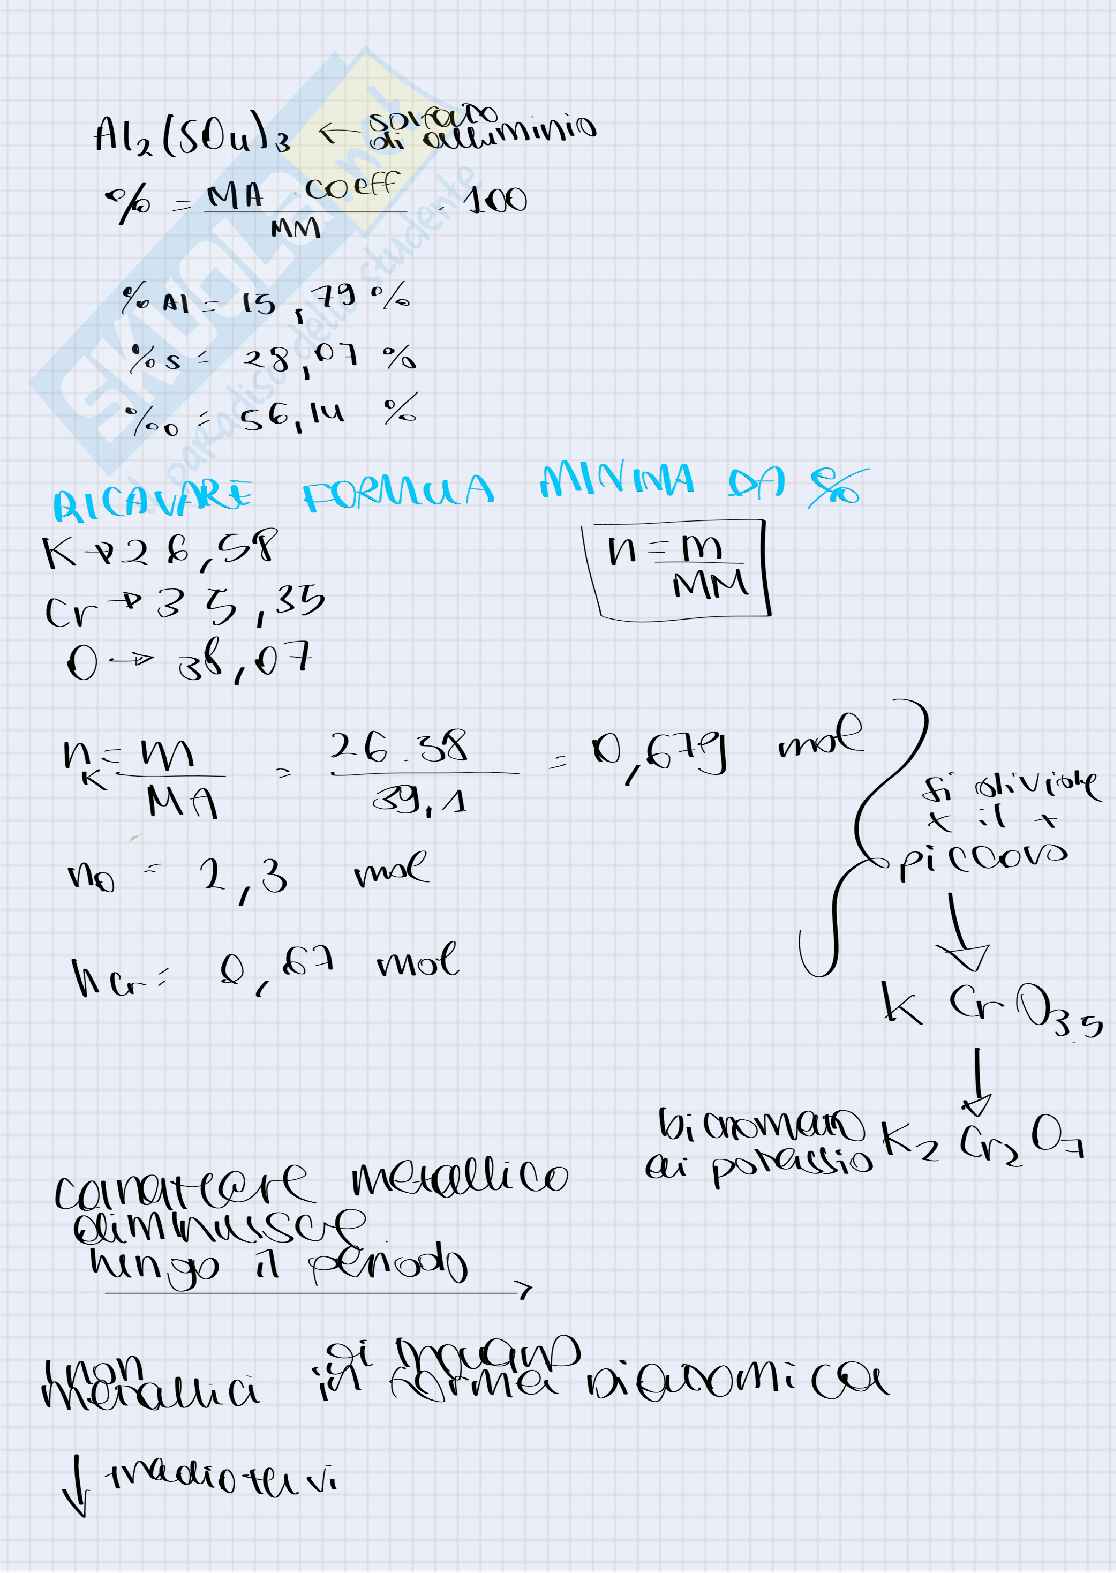 Al2(SO4)3 ← solfato
di alluminio
% = MA · coeff / MM · 100
% Al = 15,79 %
% S = 28,07 %
% O = 56,14 %
RICAVARE FORMULA MINIMA DA %
K → 26,58
n = m / MM
Cr → 35,35
O → 38,07
nK = m / MA = 26.38 / 39,1 = 0,679 mol
si divide
x il +
piccolo
nO = 2,3 mol
nCr = 0,67 mol
K Cr O3.5
bicromato
di potassio K2 Cr2 O7
carattere metallico
diminuisce
lungo il periodo
non
metallici si trovano
in forma biatomica
↓
SKUOLA.net
paradiso dello studente